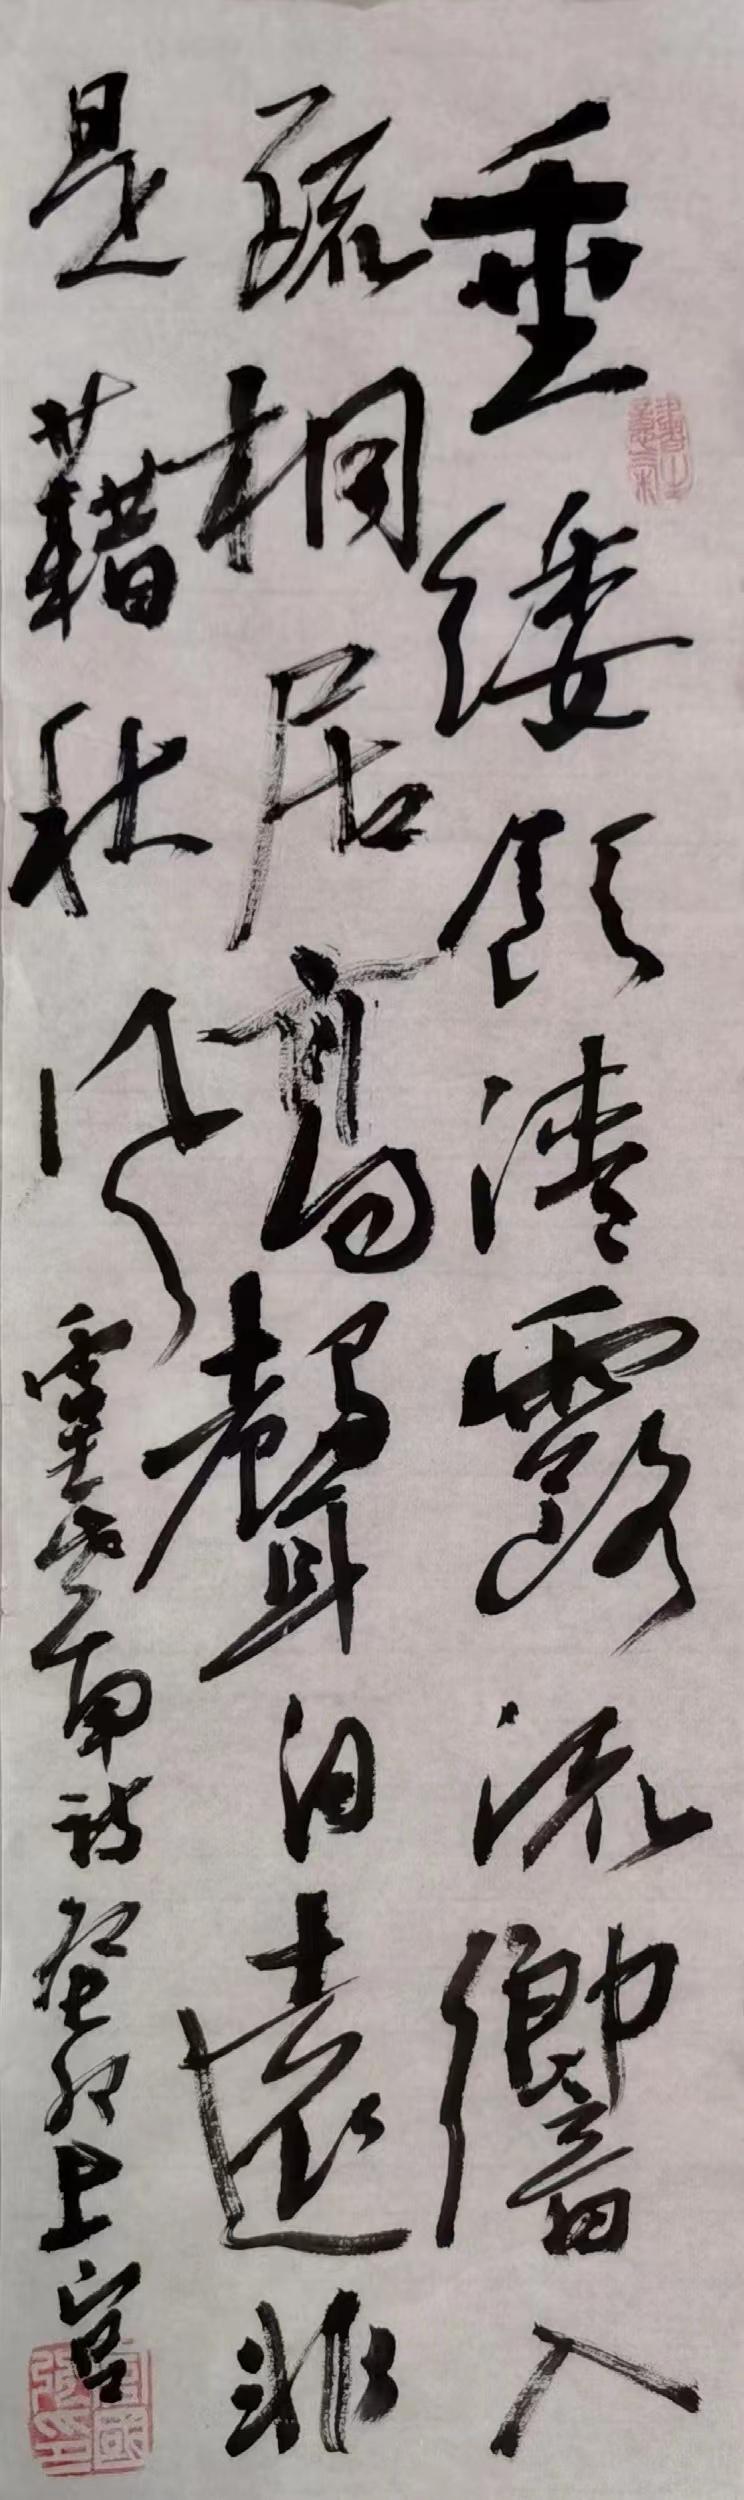 垂緌飲清露流響入
疏桐居高聲自遠非
是藉秋風 虞世南詩 癸卯上官